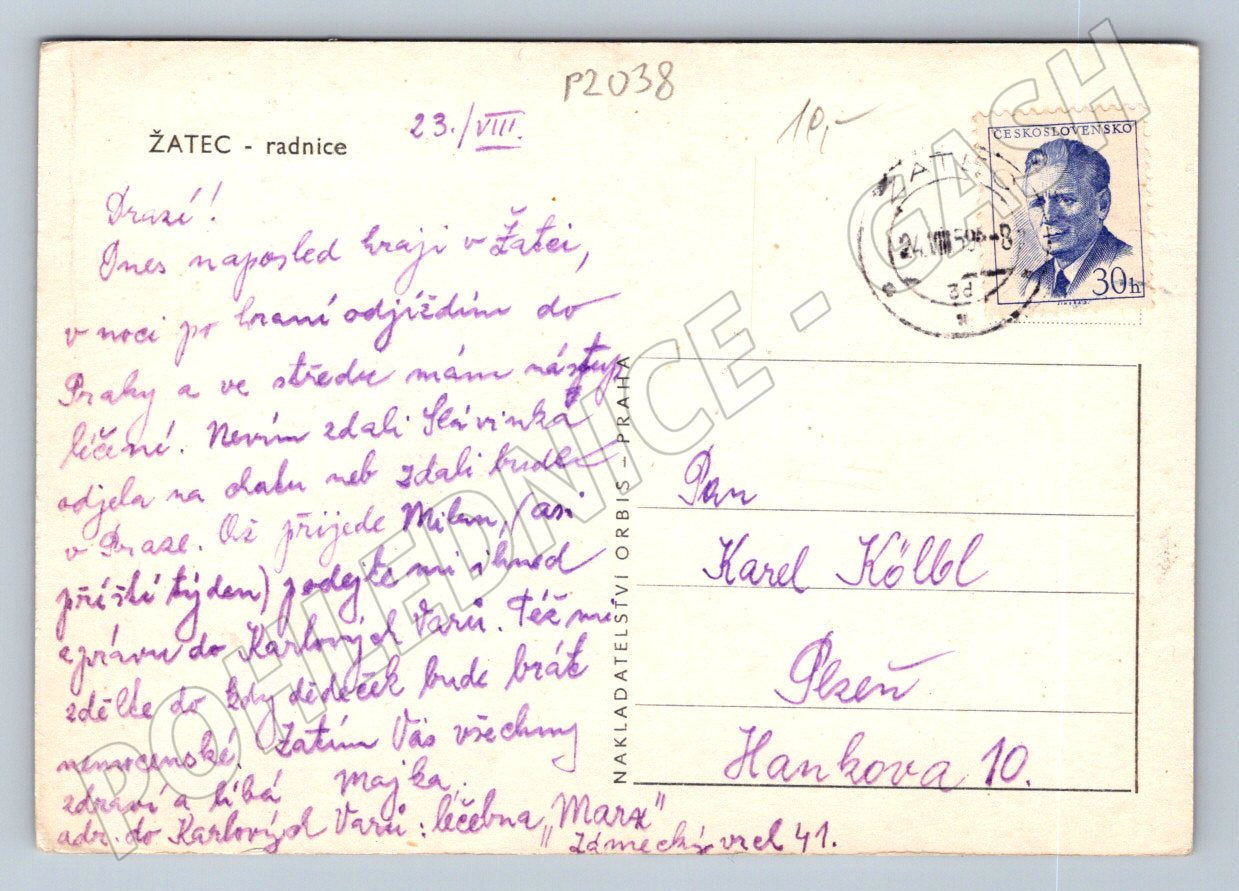 P2038
10,-
ŽATEC - radnice
23./VIII.
ČESKOSLOVENSKO
30h
ŽATEC
24.VIII.59 -8
3d
Drazí!
Dnes naposled hraji v Žatci,
v noci po hraní odjíždím do
Prahy a ve středu mám nástup
léčení. Nevím zdali Slávinka
odjela na chatu neb zdali bude
v Praze. Až přijede Milan, (asi
příští týden) podejte mi ihned
zprávu do Karlových Varů. Též mi
zdělte do kdy dědeček bude bráti
nemocenské. Zatím Vás všechny
zdraví a líbá Majka.
adr. do Karlových Varů: léčebna „Marx"
Zámecký vrch 41.
NAKLADATELSTVÍ ORBIS – PRAHA
Pan
Karel Kölbl
Plzeň
Hankova 10.
POHLEDNICE - GASH